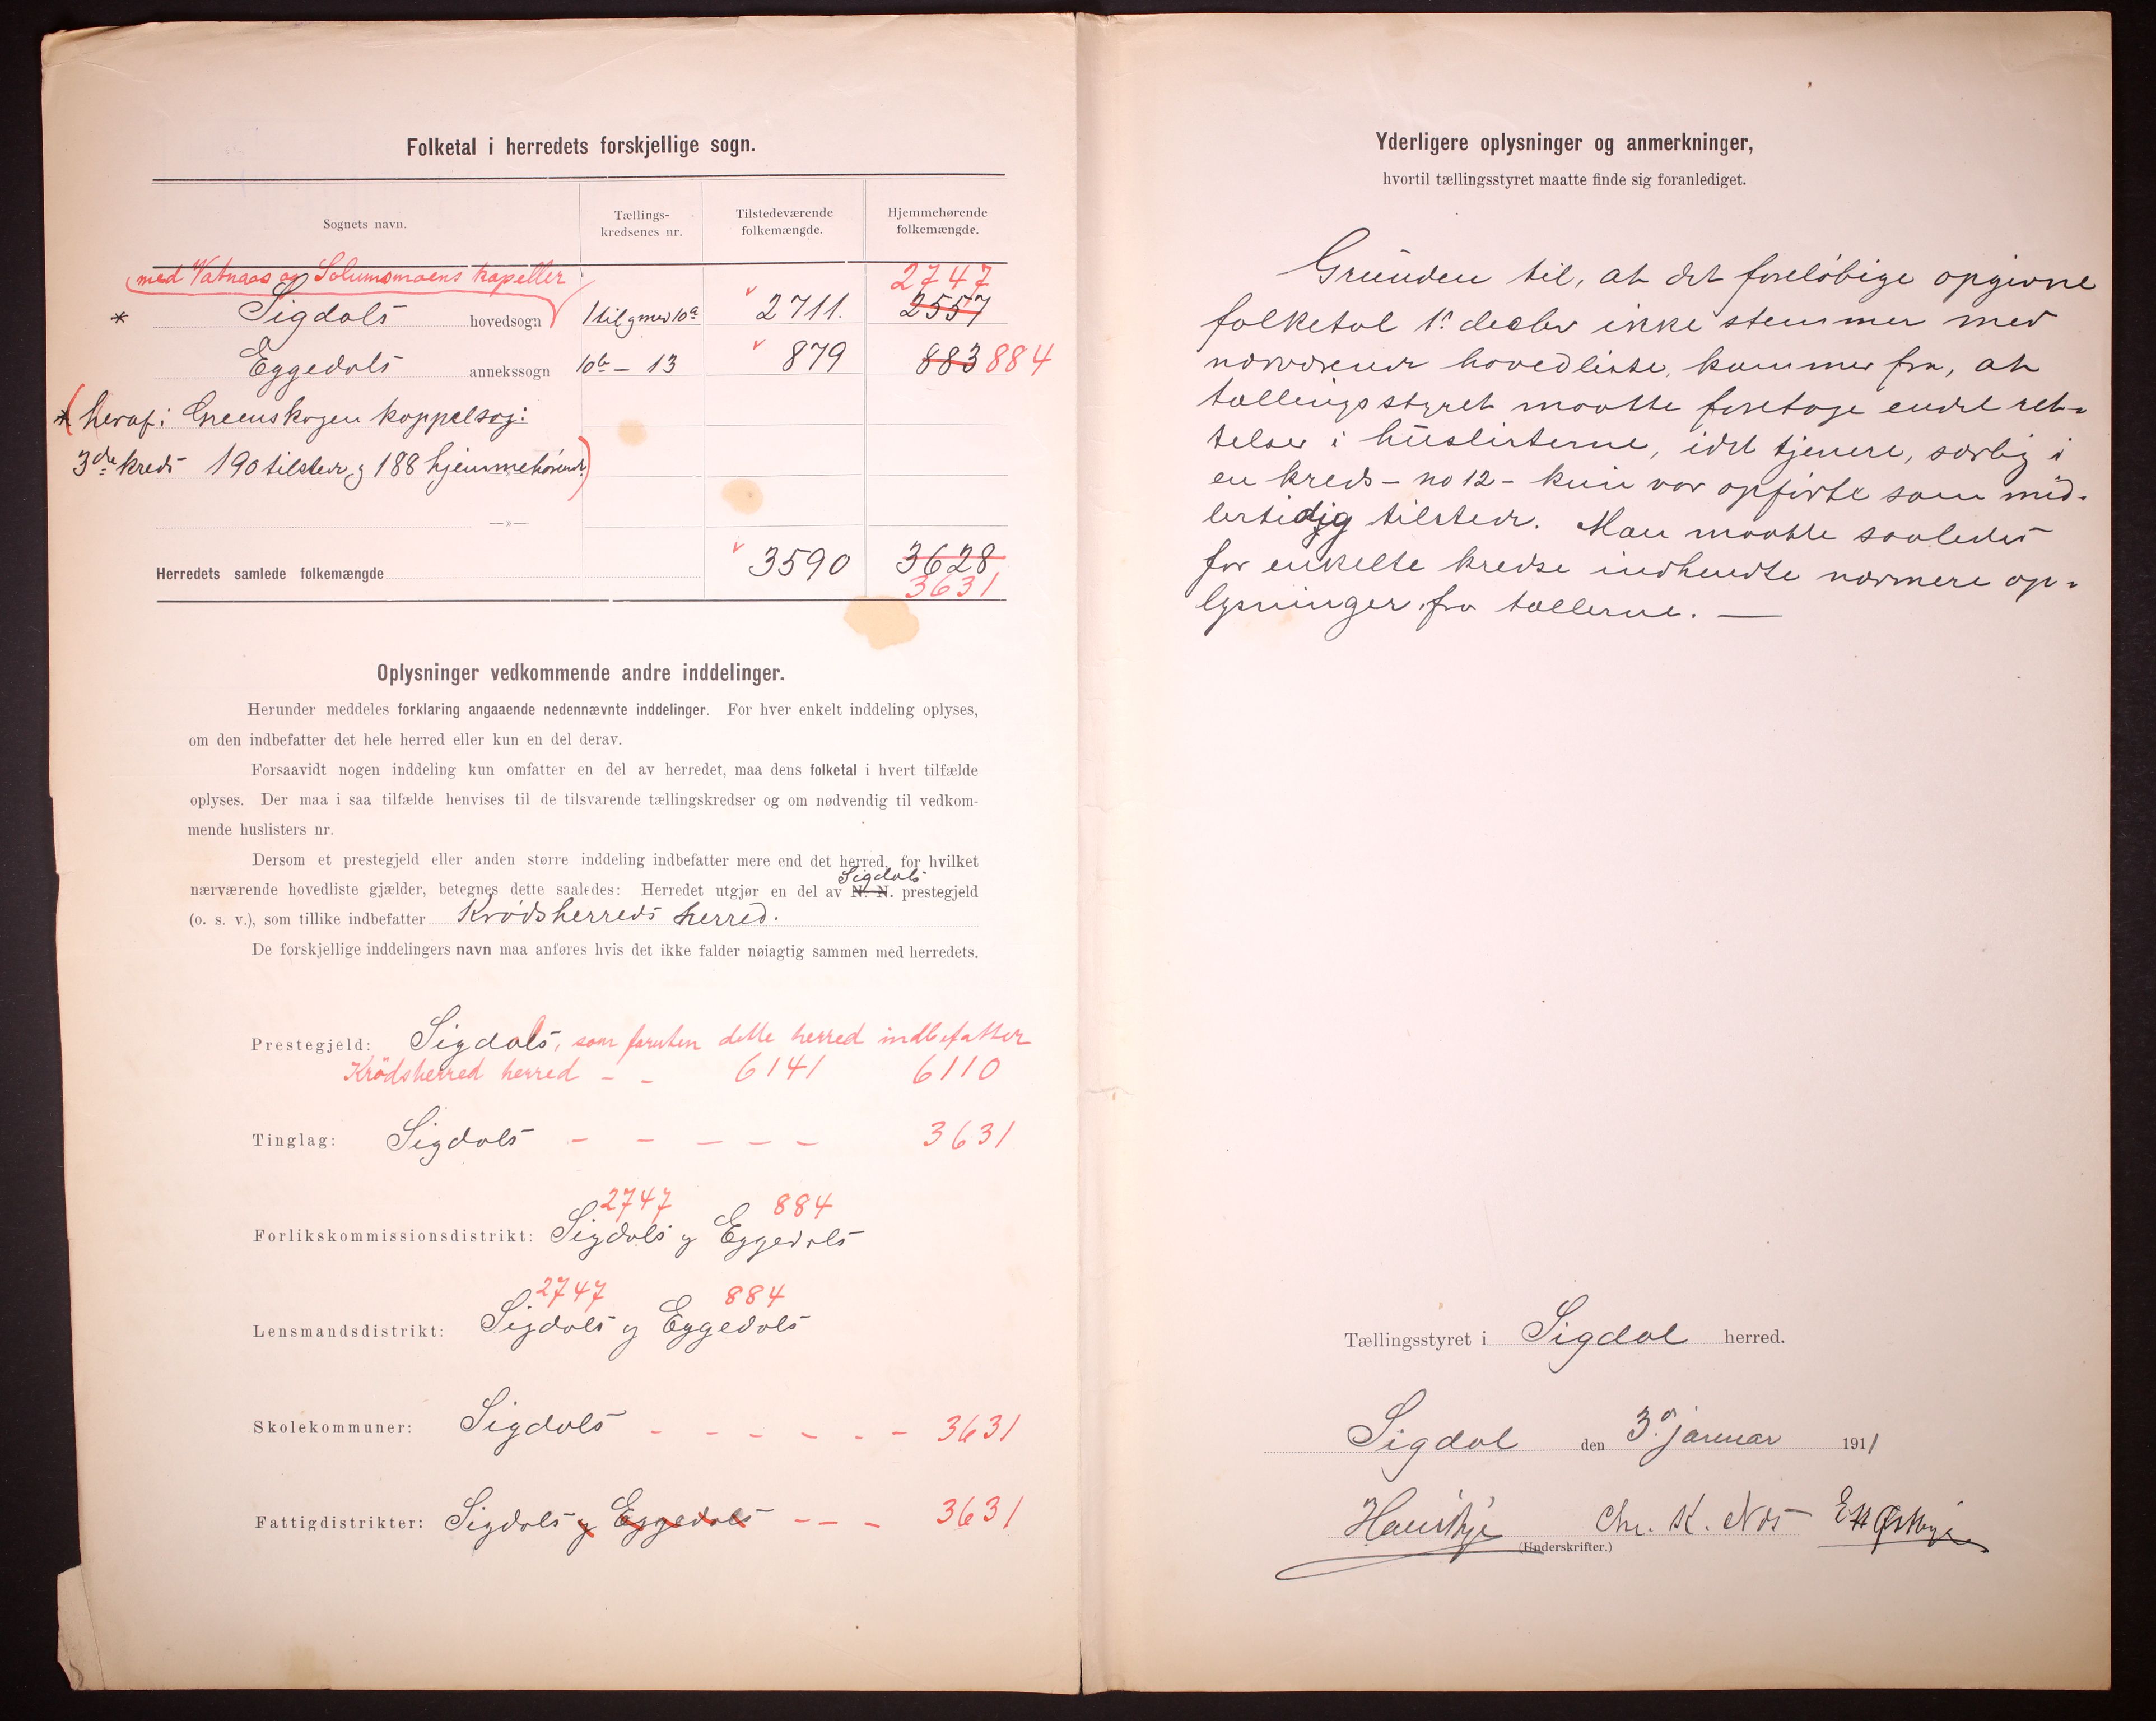 Folketal i herredets forskjellige sogn.
Sognets navn.
Tællings-
kredsenes nr.
Tilstedeværende
folkemængde.
Hjemmehørende
folkemængde.
med Vatnaas og Solumsmoens kapeller
2747
* Sigdals hovedsogn 1 til g med 10a 2711. 2557
Eggedals annekssogn 10b – 13 879 883 884
* heraf i Greenskogen kappelsogn:
3die kreds 190 tilstede og 188 hjemmehørende.
—»—
Herredets samlede folkemængde 3590 3628
3631
Oplysninger vedkommende andre inddelinger.
Herunder meddeles forklaring angaaende nedennævnte inddelinger. For hver enkelt inddeling oplyses,
om den indbefatter det hele herred eller kun en del derav.
Forsaavidt nogen inddeling kun omfatter en del av herredet, maa dens folketal i hvert tilfælde
oplyses. Der maa i saa tilfælde henvises til de tilsvarende tællingskredser og om nødvendig til vedkom-
mende huslisters nr.
Dersom et prestegjeld eller anden større inddeling indbefatter mere end det herred, for hvilket
Sigdals
nærværende hovedliste gjælder, betegnes dette saaledes: Herredet utgjør en del av N. N. prestegjeld
(o. s. v.), som tillike indbefatter Krødsherreds herred.
De forskjellige inddelingers navn maa anføres hvis det ikke falder nøiagtig sammen med herredets.
Prestegjeld: Sigdals, som foruten dette herred indbefatter
Krödsherred herred – – 6141 6110
Tinglag: Sigdals – – – – – 3631
2747 884
Forlikskommissionsdistrikt: Sigdals og Eggedals
2747 884
Lensmandsdistrikt: Sigdals og Eggedals
Skolekommuner: Sigdals – – – – – – 3631
Fattigdistrikter: Sigdals og Eggedals – – – 3631
Yderligere oplysninger og anmerkninger,
hvortil tællingsstyret maatte finde sig foranlediget.
Grunden til, at det foreløbige opgivne
folketal 1ste decbr ikke stemmer med
nærværende hovedliste, kommer fra, at
tællingsstyret maatte foretage endel ret-
telser i huslisterne, idet tjenere, særlig i
en kreds – no 12 – kun var opførte som mid-
lertidig tilstede. Man maatte saaledes
for enkelte kredse indhendte nærmere op-
lysninger fra tællerne. —
Tællingsstyret i Sigdal herred.
Sigdal den 3. januar 1911
Chr. K.
(Underskrifter.)